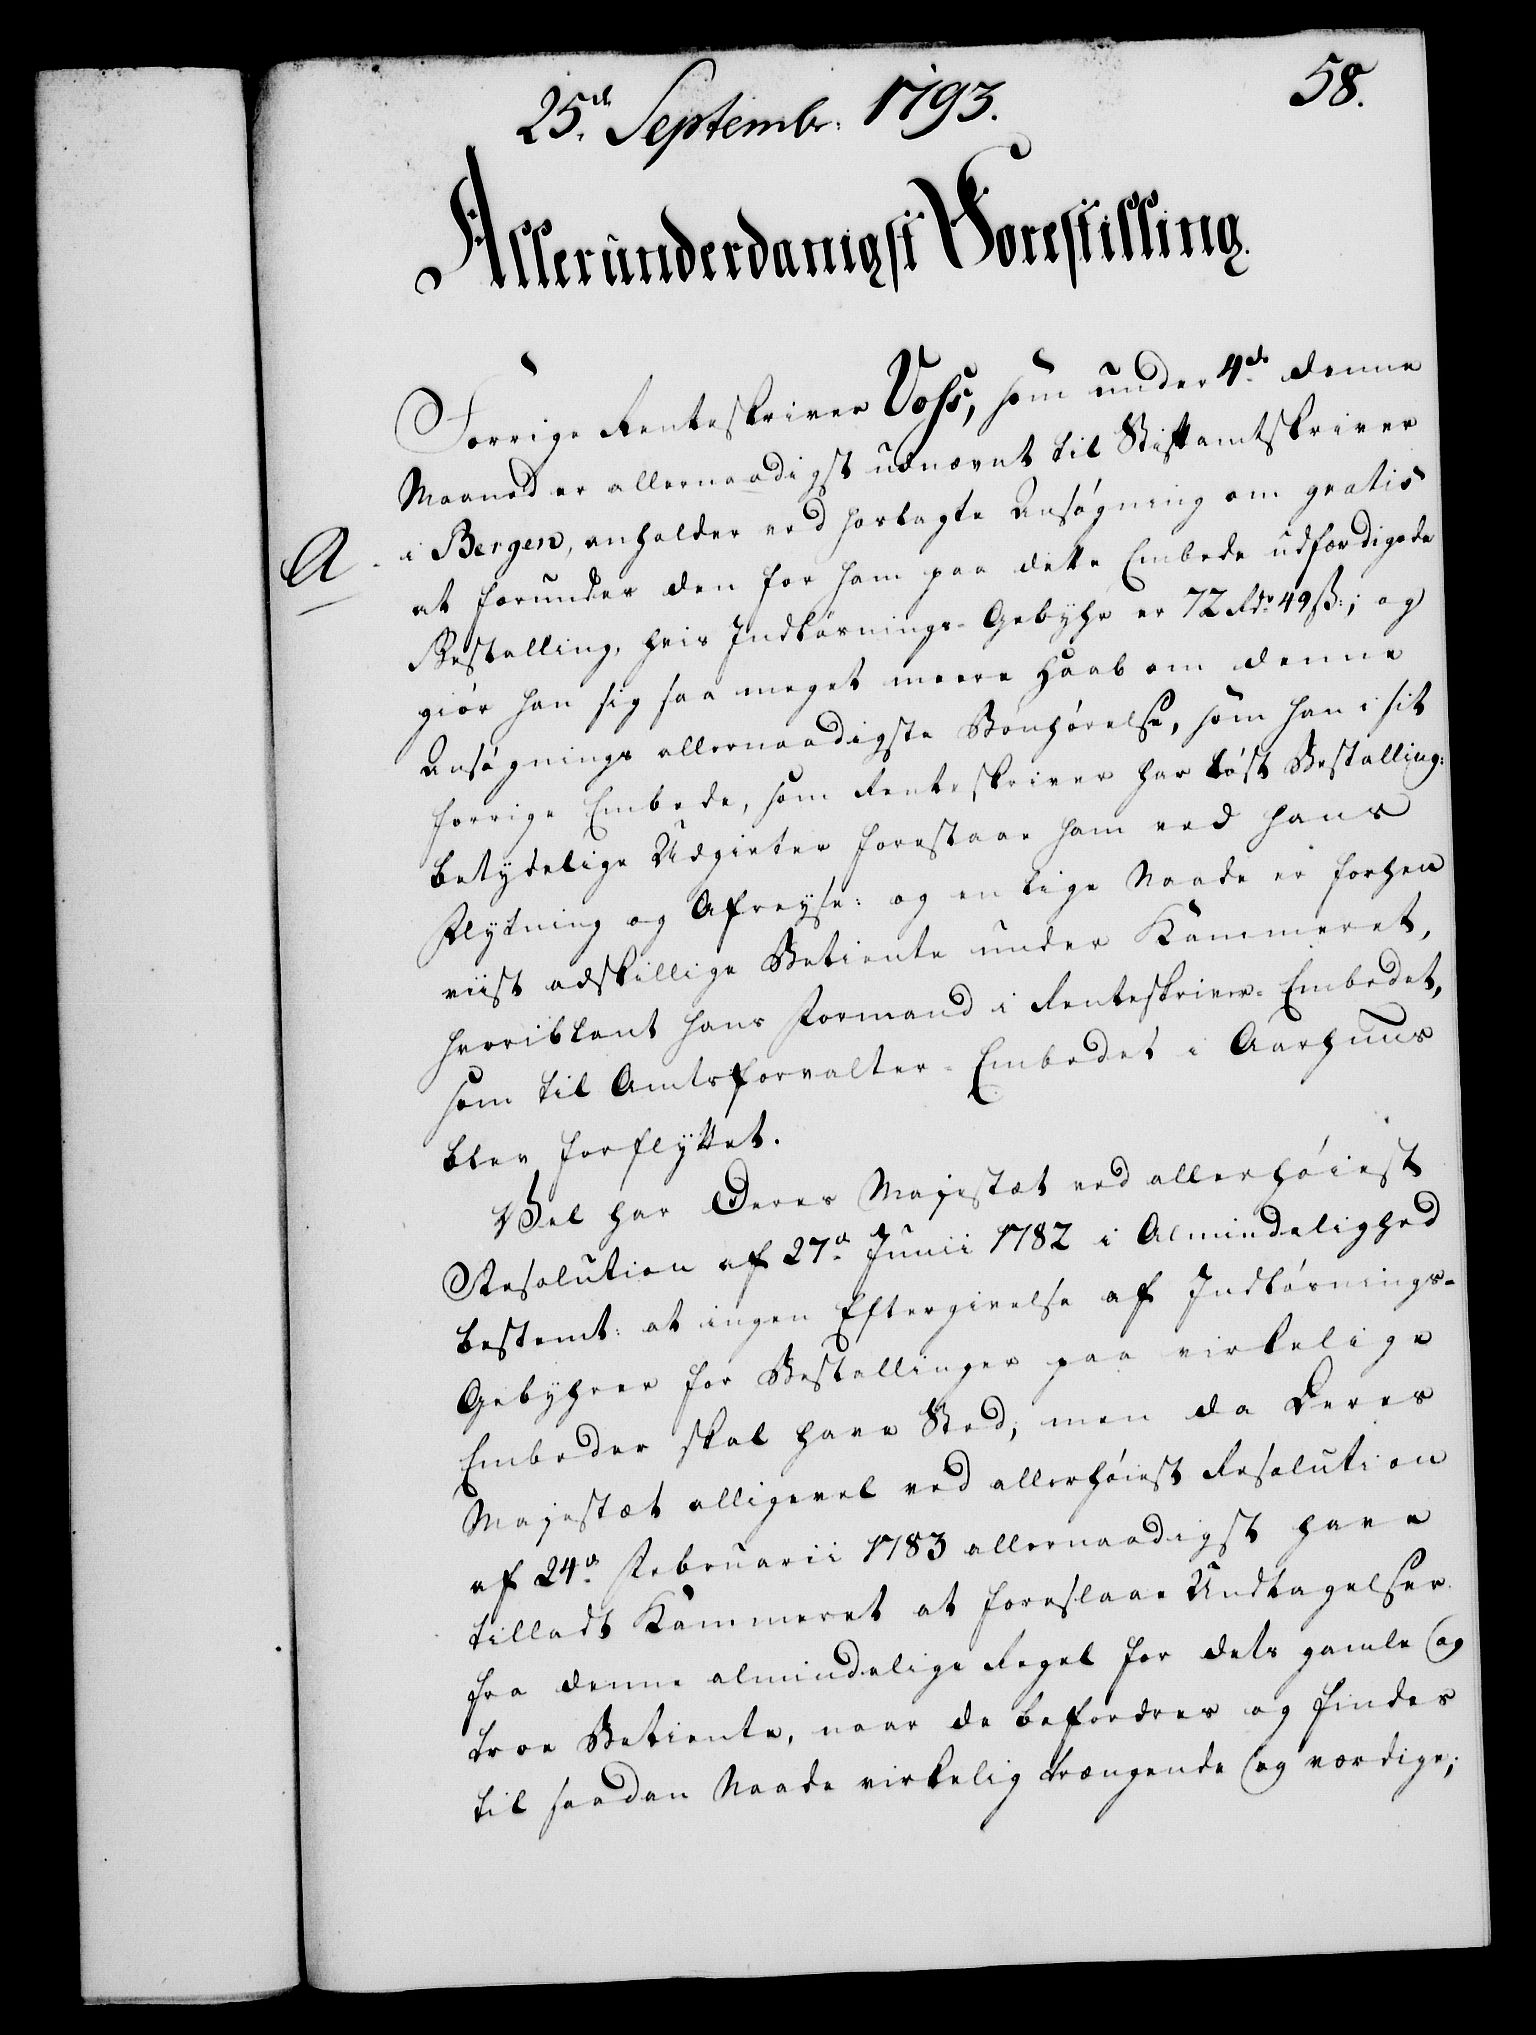 25de Septembr: 1793.
58.
Allerunderdanigst Forestilling.
Forrige Renteskriver Voss, som under 4de denne
Maaned er allernaadigst udnævnt til Stiftamtskriver
A. i Bergen, anholder ved hoslagte Ansøgning om gratis
at forundes den for ham paa dette Embede udfærdigede
Bestalling, hvis Indløsnings-Gebyhr er 72 Rdr 49 ß:; og
giør han sig saa meget meere Haab om denne
Ansøgnings allernaadigste Bønhørelse, som han i sit
forrige Embede, som Renteskriver har løst Bestalling:
betydelige Udgivter forestaae ham ved hans
Flytning og Afreyse: og en lige Naade er forhen
viist adskillige Betiente under Kammeret,
hvoriblant hans Formand i Renteskriver-Embedet,
som til Amtsforvalter-Embedet i Aarhuus
blev forflyttet.
Vel har Deres Majestæt ved allerhøiest
Resolution af 27a Junii 1782 i Almindelighed
bestemt: at ingen Eftergivelse af Indløsnings-
Gebyhrer for Bestallinger paa virkelige
Embeder skal have Sted; men da Deres
Majestæt alligevel ved allerhøiest Resolution
af 24a Februarii 1783 allernaadigst have
tilladt Kammeret at foreslaae Undtagelser
fra denne almindelige Regel for dets gamle og
troe Betiente, naar de befordres og findes
til saadan Naade virkelig trængende og værdige;